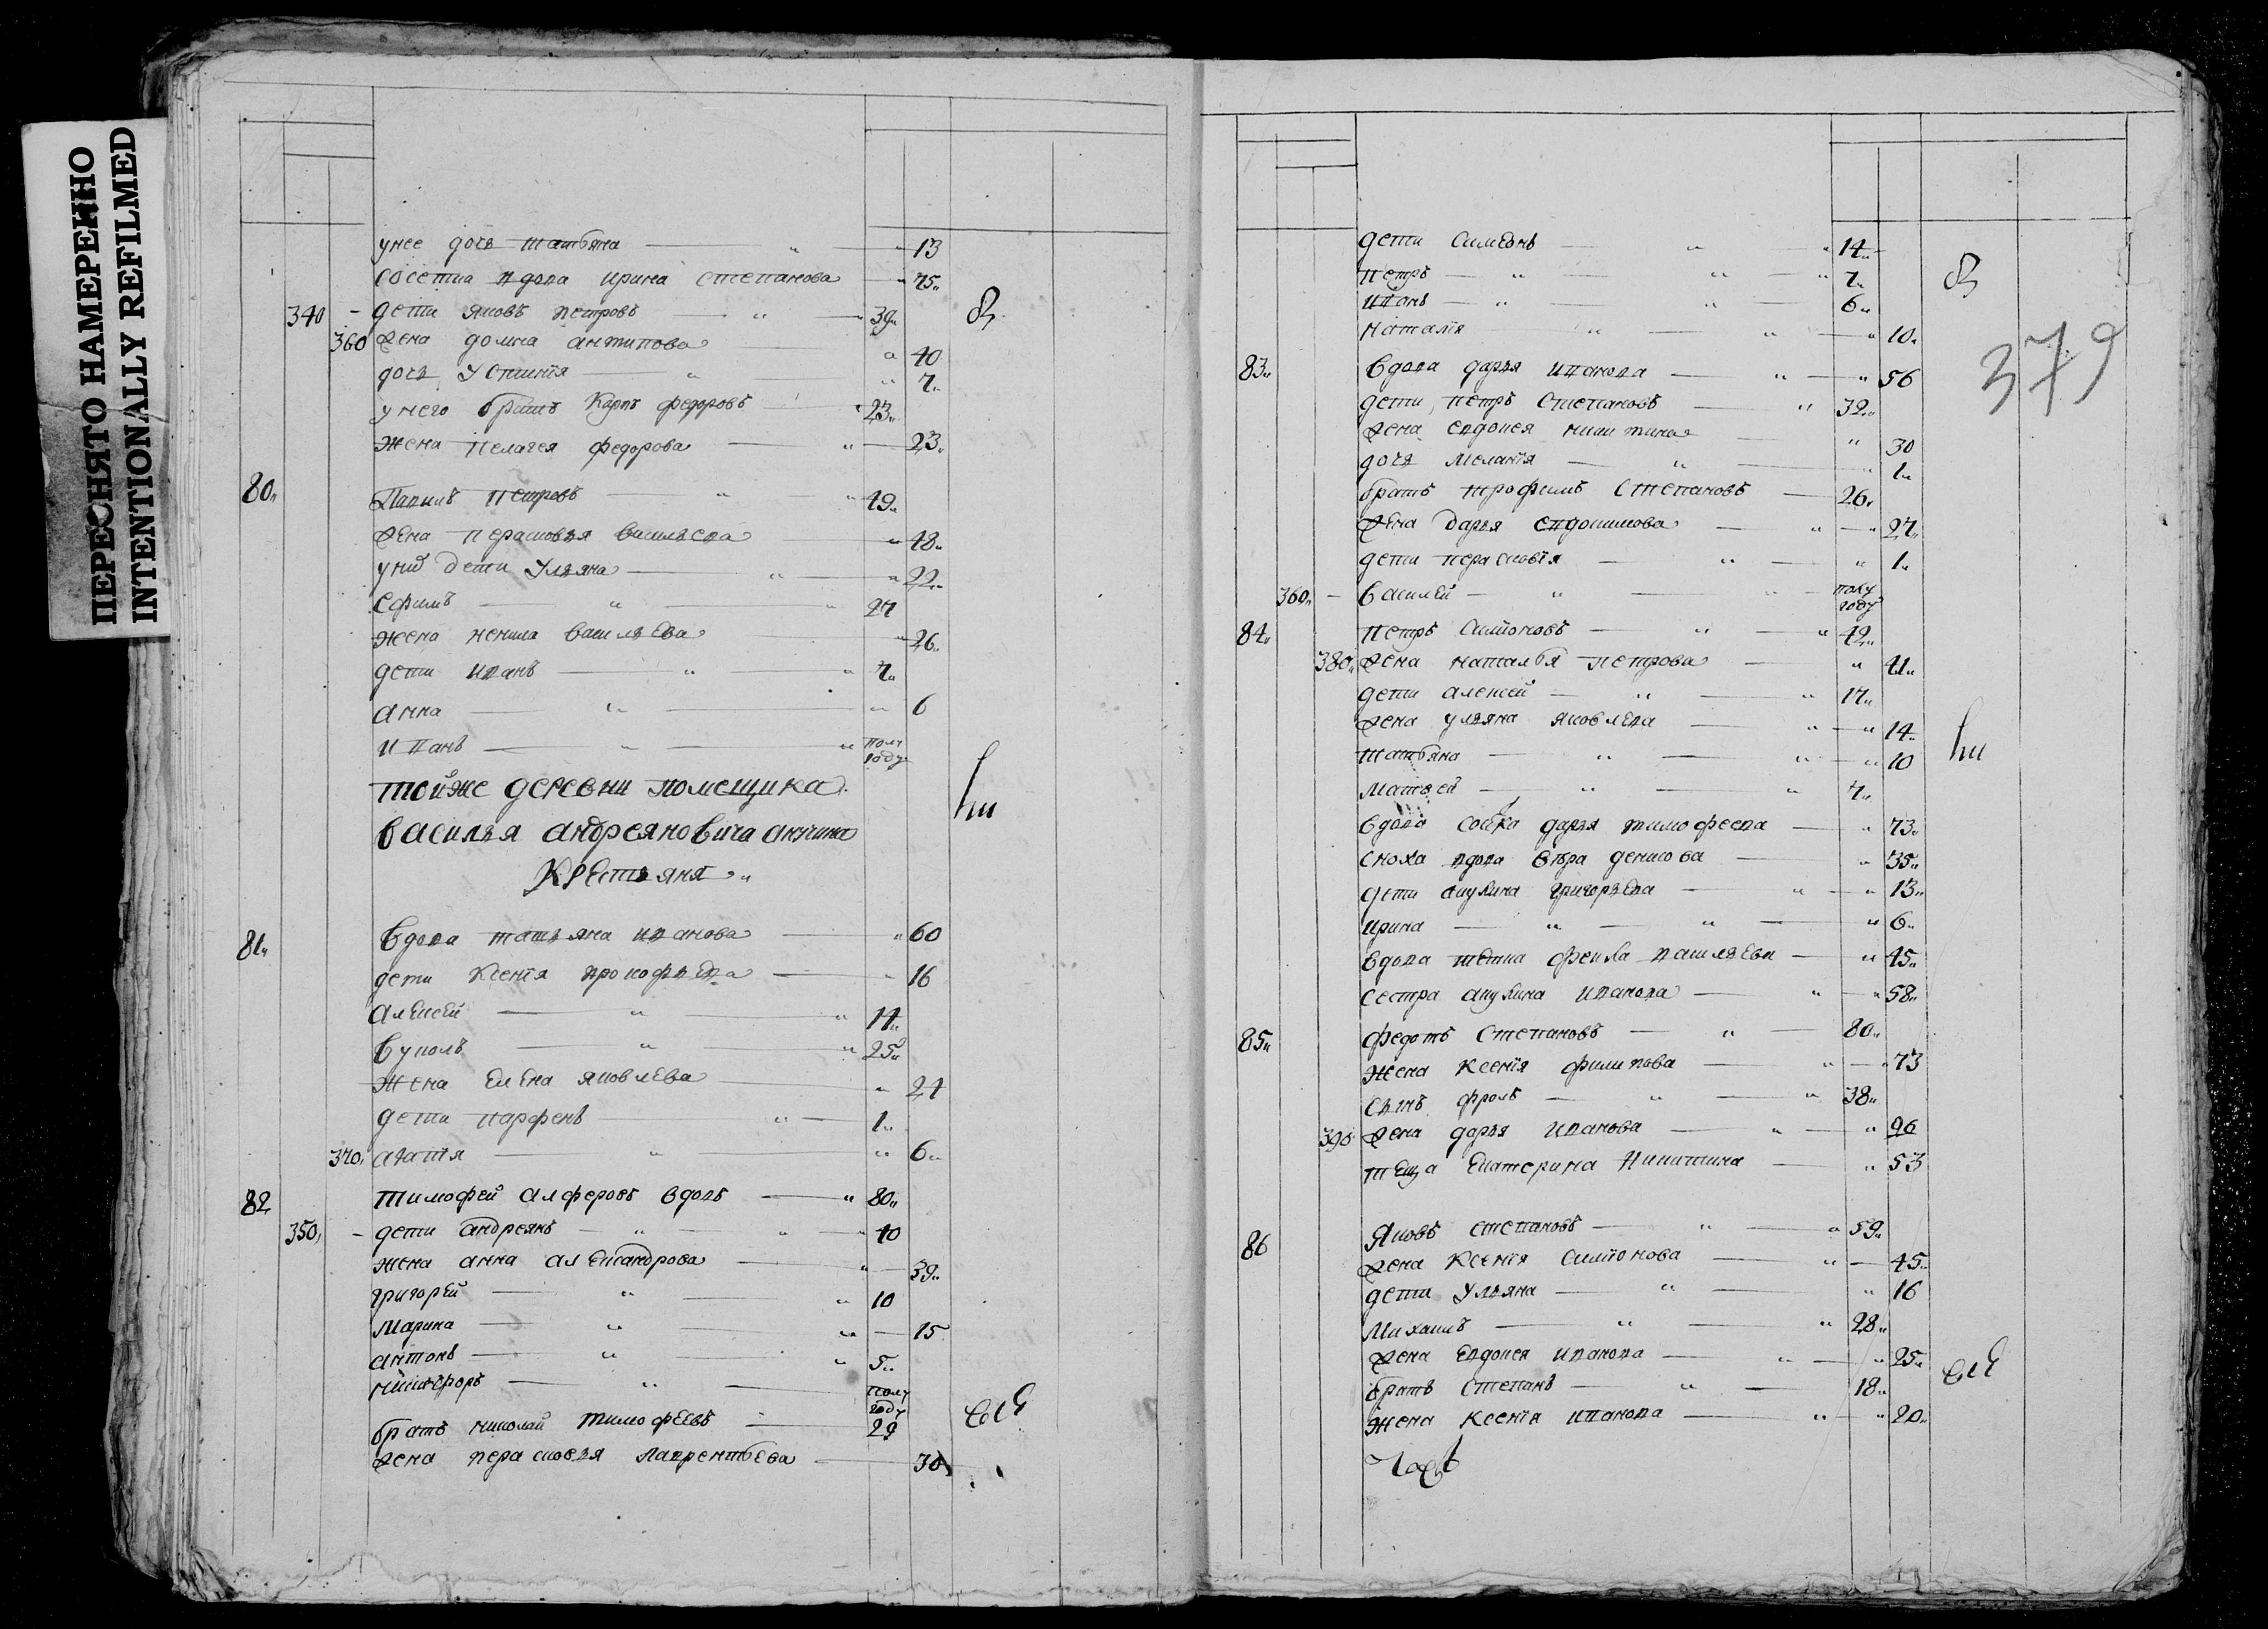 ПЕРЕСНЯТО НАМЕРЕННО
INTENTIONALLY REFILMED
унее дочь татьяна 13
вдова ирина степанова 75
340 дети яковъ петровъ 39
360 жена домна антипова 40
дочь устинія 7
у него братъ Карпъ федоровъ 23
жена пелагея федорова 23
80 петровъ 49
жена перасковья васильева 48
унихъ дети ульяна 22
ефимъ 27
жена ненила васильева 26
дети иванъ 7
анна 6
иванъ полу году
тойже деревни помещика
василья андреяновича
крестьяня
81 вдова татьяна иванова 60
дети ксенія прокофьева 16
алексей 14
вуколъ 25
жена елена яковлева 24
дети парфенъ 1
370 агатія 6
82 тимофей алферовъ вдовъ 80
350 дети андреянъ 40
жена анна александрова 39
григорей 10
марина 15
антонъ 5
никифоръ полу году
братъ николай тимофеевъ 29
жена перасковья лаврентьева 30
дети симеонъ 14
петръ 7
иванъ 6
наталія 10
379
83 вдова дарья иванова 56
дети петръ степановъ 32
жена евдокея никитина 30
дочь меланія 1
братъ трофимъ степановъ 26
жена дарья евдокимова 27
дети перасковія 1
360 василей полу году
84 петръ симоновъ 42
380 жена наталья петрова 41
дети алексей 17
жена ульяна яковлева 14
татьяна 10
матвей 7
вдова дарья тимофеева 73
сноха вдова вера денисова 35
дети акулина григорьева 13
ирина 6
вдова тетка васильева 45
сестра акулина иванова 58
85 федотъ степановъ 80
жена ксенія филипова 73
сынъ фролъ 38
390 жена дарья иванова 96
теща екатерина никитина 53
86 яковъ степановъ 59
жена ксенія симонова 45
дети ульяна 16
михаилъ 28
жена евдокея иванова 25
братъ степанъ 18
жена ксенія иванова 20